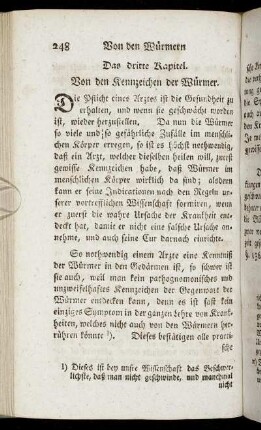 248 Von den Würmern
Das dritte Kapitel.
Von den Kennzeichen der Würmer.
Die Pflicht eines Arztes ist die Gesundheit zu
erhalten, und wenn sie geschwächt worden
ist, wieder herzustellen. Da nun die Würmer
so viele und so gefährliche Zufälle im menschli-
chen Körper erregen, so ist es höchst nothwendig,
daß ein Arzt, welcher dieselben heilen will, zuerst
gewisse Kennzeichen habe, daß Würmer im
menschlichen Körper wirklich da sind; alsdenn
kann er seine Indicationen nach den Regeln un-
serer vortreflichen Wissenschaft formiren, wenn
er zuerst die wahre Ursache der Krankheit ent-
deckt hat, damit er nicht eine falsche Ursache an-
nehme, und auch seine Cur darnach einrichte.
So nothwendig einem Arzte eine Kenntniß
der Würmer in den Gedärmen ist, so schwer ist
sie auch, weil man kein pathognomonisches und
unzweifelhaftes Kennzeichen der Gegenwart der
Würmer entdecken kann, denn es ist fast kein
einziges Symptom in der ganzen Lehre von Krank-
heiten, welches nicht auch von den Würmern her-
rühren könnte 1). Dieses bestätigen alle practi-
sche
1) Dieses ist bey unsrer Wissenschaft das Beschwer-
lichste, daß man nicht geschwinde, und manchmal
nicht